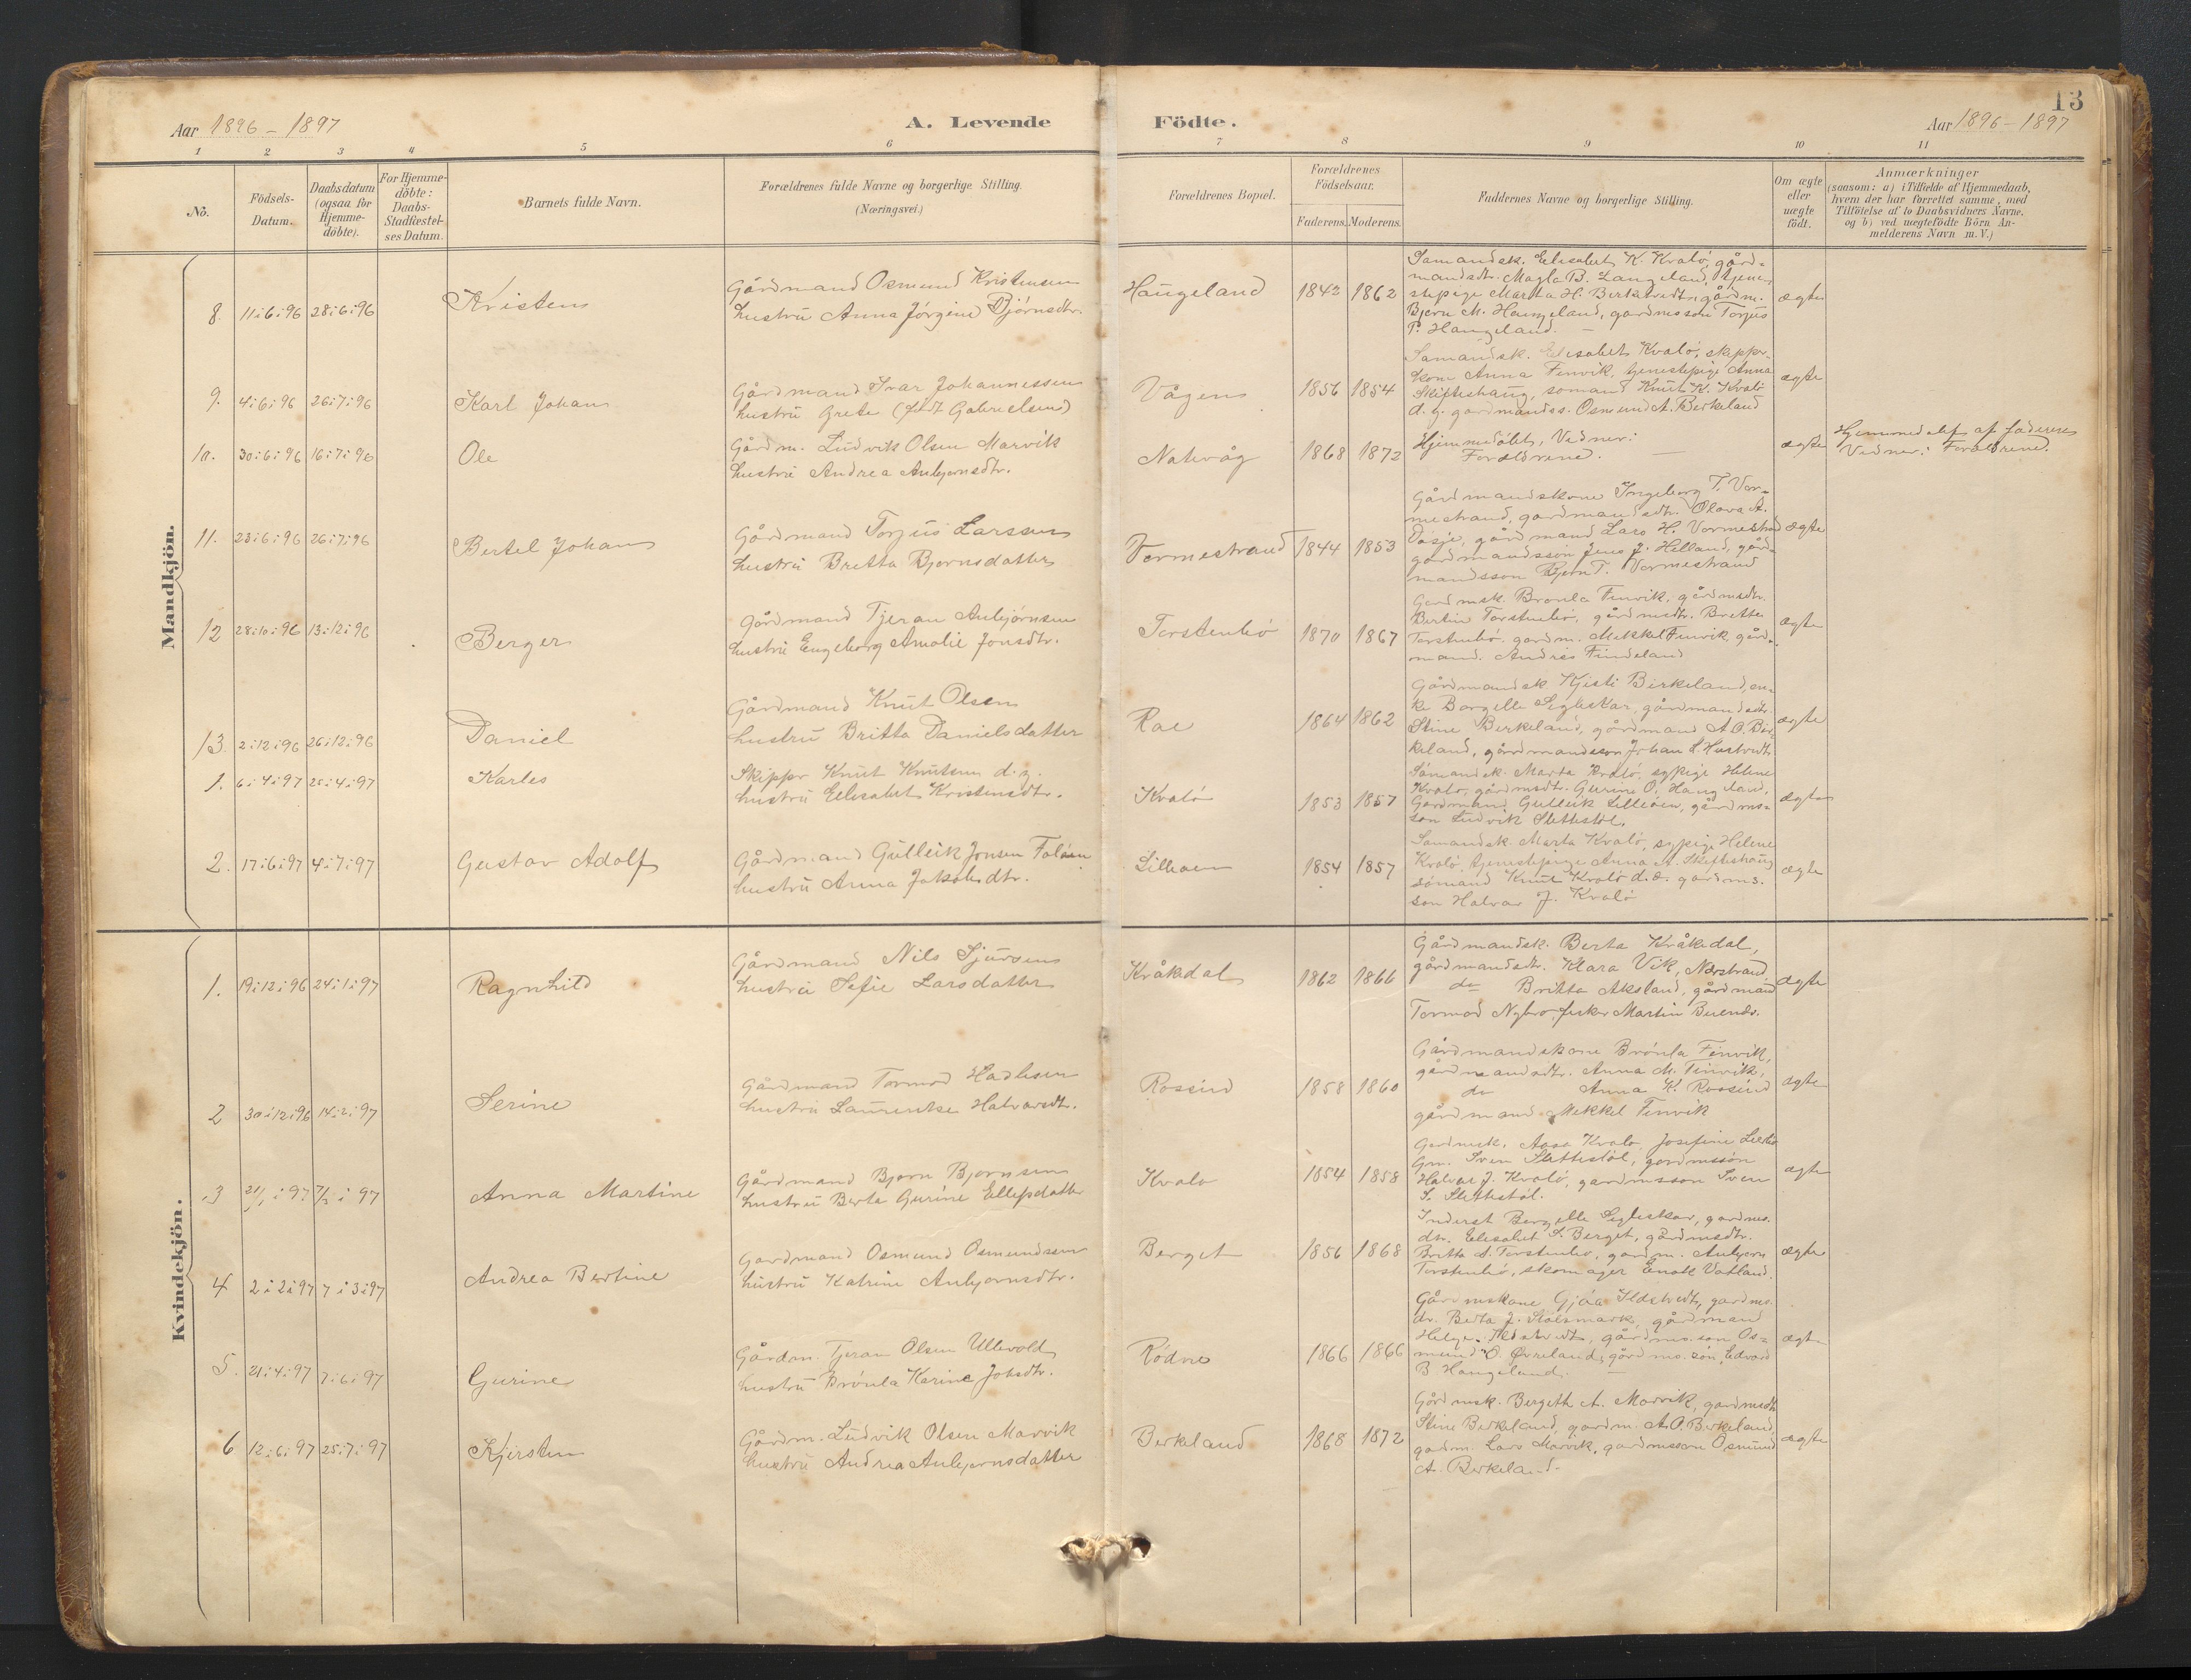 Aar 1896 - 1897
A. Levende
Födte.
13
Aar 1896 - 1897
1 2 3 4 5 6 7 8 9 10 11
No.
Födsels-
Datum.
Daabsdatum
(ogsaa for
Hjemme-
döbte).
For Hjemme-
döbte:
Daabs-
Stadfæstel-
ses Datum.
Barnets fulde Navn.
Forældrenes fulde Navne og borgerlige Stilling.
(Næringsvei.)
Forældrenes Bopæl.
Forældrenes
Födselsaar.
Faderens. Moderens.
Faddernes Navne og borgerlige Stilling.
Om ægte
eller
uægte
födt.
Anmærkninger
(saasom: a) i Tilfælde af Hjemmedaab,
hvem der har forrettet samme, med
Tilföielse af to Daabsvidners Navne.
og b) ved uægtefödte Börn An-
melderens Navn m. V.)
Mandkjön.
8. 11:6:96 28:6:96
Kristens
Gårdmand Osmund Kristensen
hustru Anna Jörgine Björnsdtr.
Haugeland
1842 1862
Sömandsk. Elisabet K. Kvalö, gård-
mandsdtr. Magla B. Haugeland, tjene-
stepige Marta H. Birketvedt, gårdm.
Bjorn M. Haugeland, gardmsson Torjus
P. Haugeland.
ægte
9. 4:6:96 26:7:96
Karl Johan
Gårdmand Ivar Johannessen
hustru Grete (födt Gabrielsen)
Vågen
1856 1854
Sömandsk. Elisabet Kvalö, skipper-
kone Anna Finvik, tjenestepige Anna
Skiftishaug, sömand Knut K. Kvalö
d. y. gardmandss. Osmund A. Berkeland
ægte
10. 30:6:96 16:7:96
Ole
Gårdm. Ludvik Olsen Marvik
hustru Andrea Anbjornsdtr.
Nakvåg
1868 1872
Hjemmedöbt, Vidner:
Forældrene.
ægte
Hjemmedöbt af faderen
Vidner: Forældrene.
11. 23:6:96 26:7:96
Bertel Johan
Gårdmand Torjus Larssen
hustru Britta Bjornsdatter
Vormestrand
1844 1853
Gårdmandskone Ingeborg T. Vor-
mestrand, gardmandsdtr. Olava A.
Vasje, gårdmand Lars H. Vormestrand
gårdmandsson Jens J. Helland, gård-
mandsson Bjorn T. Vormestrand
ægte
12 28:10:96 13:12:96
Berger
Gårdmand Tjeran Anbjörnsen
hustru Engeborg Amalie Jonsdtr.
Torstenbö
1870 1867
Gardmsk. Bronla Finvik, gårdmsdtr.
Bertine Torstenbö, gårdmsdtr. Britta
Torstenbö, gardm. Mekkel Finvik, gård-
mand. Andreas Findeland
ægte
13. 2:12:96 26:12:96
Daniel
Gårdmand Knut Olsen
hustru Britta Danielsdatter
Rae
1864 1862
Gårdmandsk. Kjisti Birkeland, en-
ke Borgille Segleskar, gårdmandsdtr.
Stine Berkeland, gårdmand A. O. Bir-
keland, gårdmandsson Johan S. Hustvedt
ægte
1. 6:4:97 25:4:97
Karles
Skipper Knut Knutsen d. y.
hustru Ellisabet Kristensdtr.
Kvalö
1853 1857
Sömandsk. Marta Kvalö, sypige Helene
Kvalo, gårdmsdtr. Gurine O. Haugeland,
Gardmand Gulleik Lilleöen, gårdms-
son Ludvik Slettestöl.
ægte
2. 17:6:97 4:7:97
Gustav Adolf
Gårdmand Gulleik Jonsen Foløen
hustru Anna Jakobsdtr.
Lilleoen
1854 1857
Sömandsk. Marta Kvalö, sypige Helene
Kvalö, tjenestepige Anna A. Skiftishaug
sömand Knut Kvalö d. æ. gardms-
son Halvar J. Kvalö
ægte
Kvindekjön.
1. 19:12:96 24:1:97
Ragnhild
Gårdmand Nils Sjursen
hustru Sefie Larsdatter
Kråkedal
1862 1866
Gårdmandsk. Berta Kråkedal,
gårdmandsdtr. Klara Vik, Nærstrand
do Britta Aksland, gårdmand
Tormod Nybro, fisker Martin Buendr.
ægte
2 30:12:96 14:2:97
Serine
Gårdmand Tormod Hadlesen
hustru Laurentse Halvarsdtr.
Rossind
1858 1860
Gårdmandskone Brönla Finvik,
gårdmandsdtr. Anna M. Finvik,
do Anna K. Rossind
gårdmand Mekkel Finvik
ægte
3 21/1:97 7/3:97
Anna Martine
Gårdmand Bjorn Bjornsen
hustru Berta Gurine Ellefsdatter
Kvalo
1854 1858
Gardmsk. Aasa Kvalo, Josefine
Gm. Sven Slettestöl, gardmssön
Halvar J. Kvalö, gardmsson Sven
S. Slettestöl.
ægte
4 2:2:97 7:3:97
Andrea Bertine
Gardmand Osmund Osmundsen
hustru Katrine Anbjornsdtr.
Berget
1856 1868
Inderst Borgille Segleskar, gardms-
dtr. Elesabet S. Berget, gårdmsdtr.
Britta A. Torstenbo, gardm. Anbjorn
Torstenbö, skomager Enok Vatland.
ægte
5. 21:4:97 7:6:97
Gurine
Gårdm. Tjeran Olsen Ullevold
hustru Brönla Karine Johsdtr.
Rödne
1866 1866
Gårdmskone Gjöa Ildstvedt, gardms-
dr. Berta J. Stölsmark, gårdmand
Helge Ildstvedt, gårdms. son Os-
mund O. Øvreland, gårdms. sön Edvard
B Haugeland.
ægte
6 12:6:97 25:7:97
Kjersten
Gårdm. Ludvik Olsen Marvik
hustru Andrea Anbjornsdatter
Berkeland
1868 1872
Gårdmsk. Bergeth A. Marvik, gardmsdtr
Stine Berkeland, gardm. A. O. Berkeland,
gadm. Lars Marvik, gardmsson Osmund
A. Berkeland.
ægte